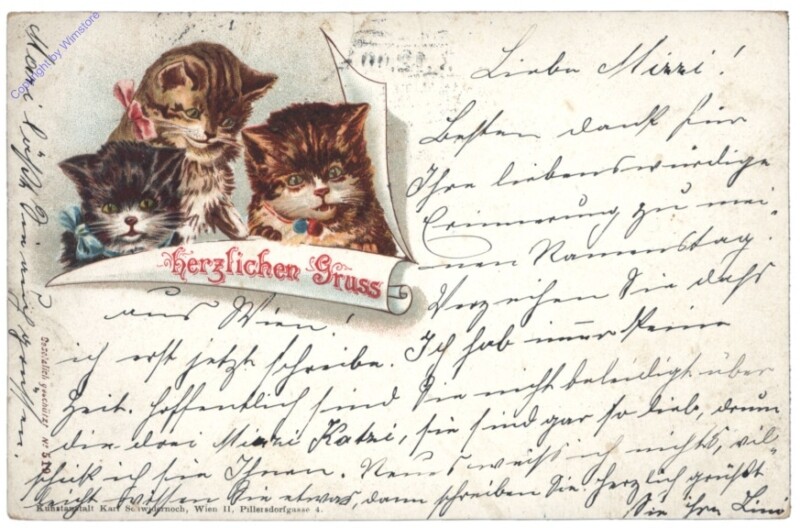 Liebe Mizzi!
Besten dank für
Ihre liebenswürdige
Erinnerung zu mei
nen Namenstag.
Herzlichen Gruss
aus Wien!
Verzeihen Sie dass
ich erst jetzt schreibe. Ich hab immer keine
Zeit. hoffentlich sind Sie nicht beleidigt über
die drei Mizzi Katzi, sie sind gar so lieb, drum
schick ich sie Ihnen. Neues weiss ich nichts, vil-
leicht wissen Sie etwas, dann schreiben Sie. herzlich grüsst
Sie ihre
Kunstanstalt Karl Schwidernoch, Wien II, Pillersdorfgasse 4.
Gesetzlich geschützt Nº
Copyright by Wimstore